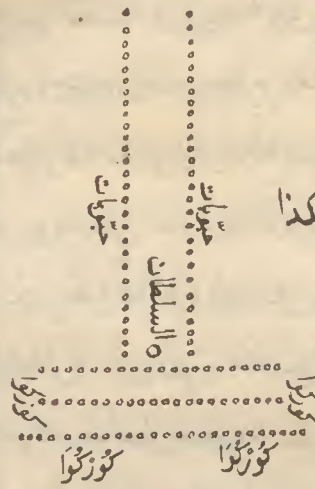 كذا
حبّوبات
حبّوبات
السلطان
كوركوا
كوركوا
كُورْكُوَا
كُورْكُوَا